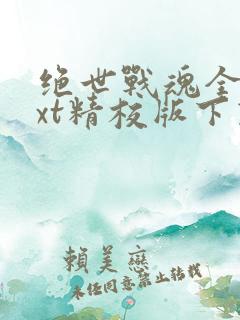 绝世战魂全
xt精校版下
賴美戀
未经同意禁止转载